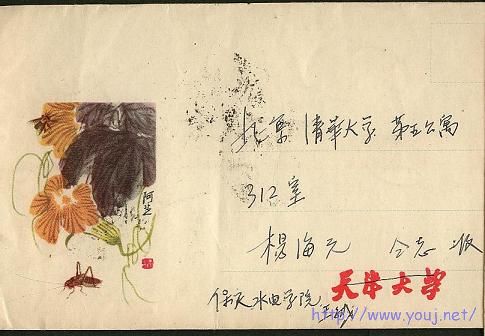 北京 清華大学 第五公寓
312室
楊海元 仝志收
阿芝
天津大学
保定水电学院
http://www.youj.net/